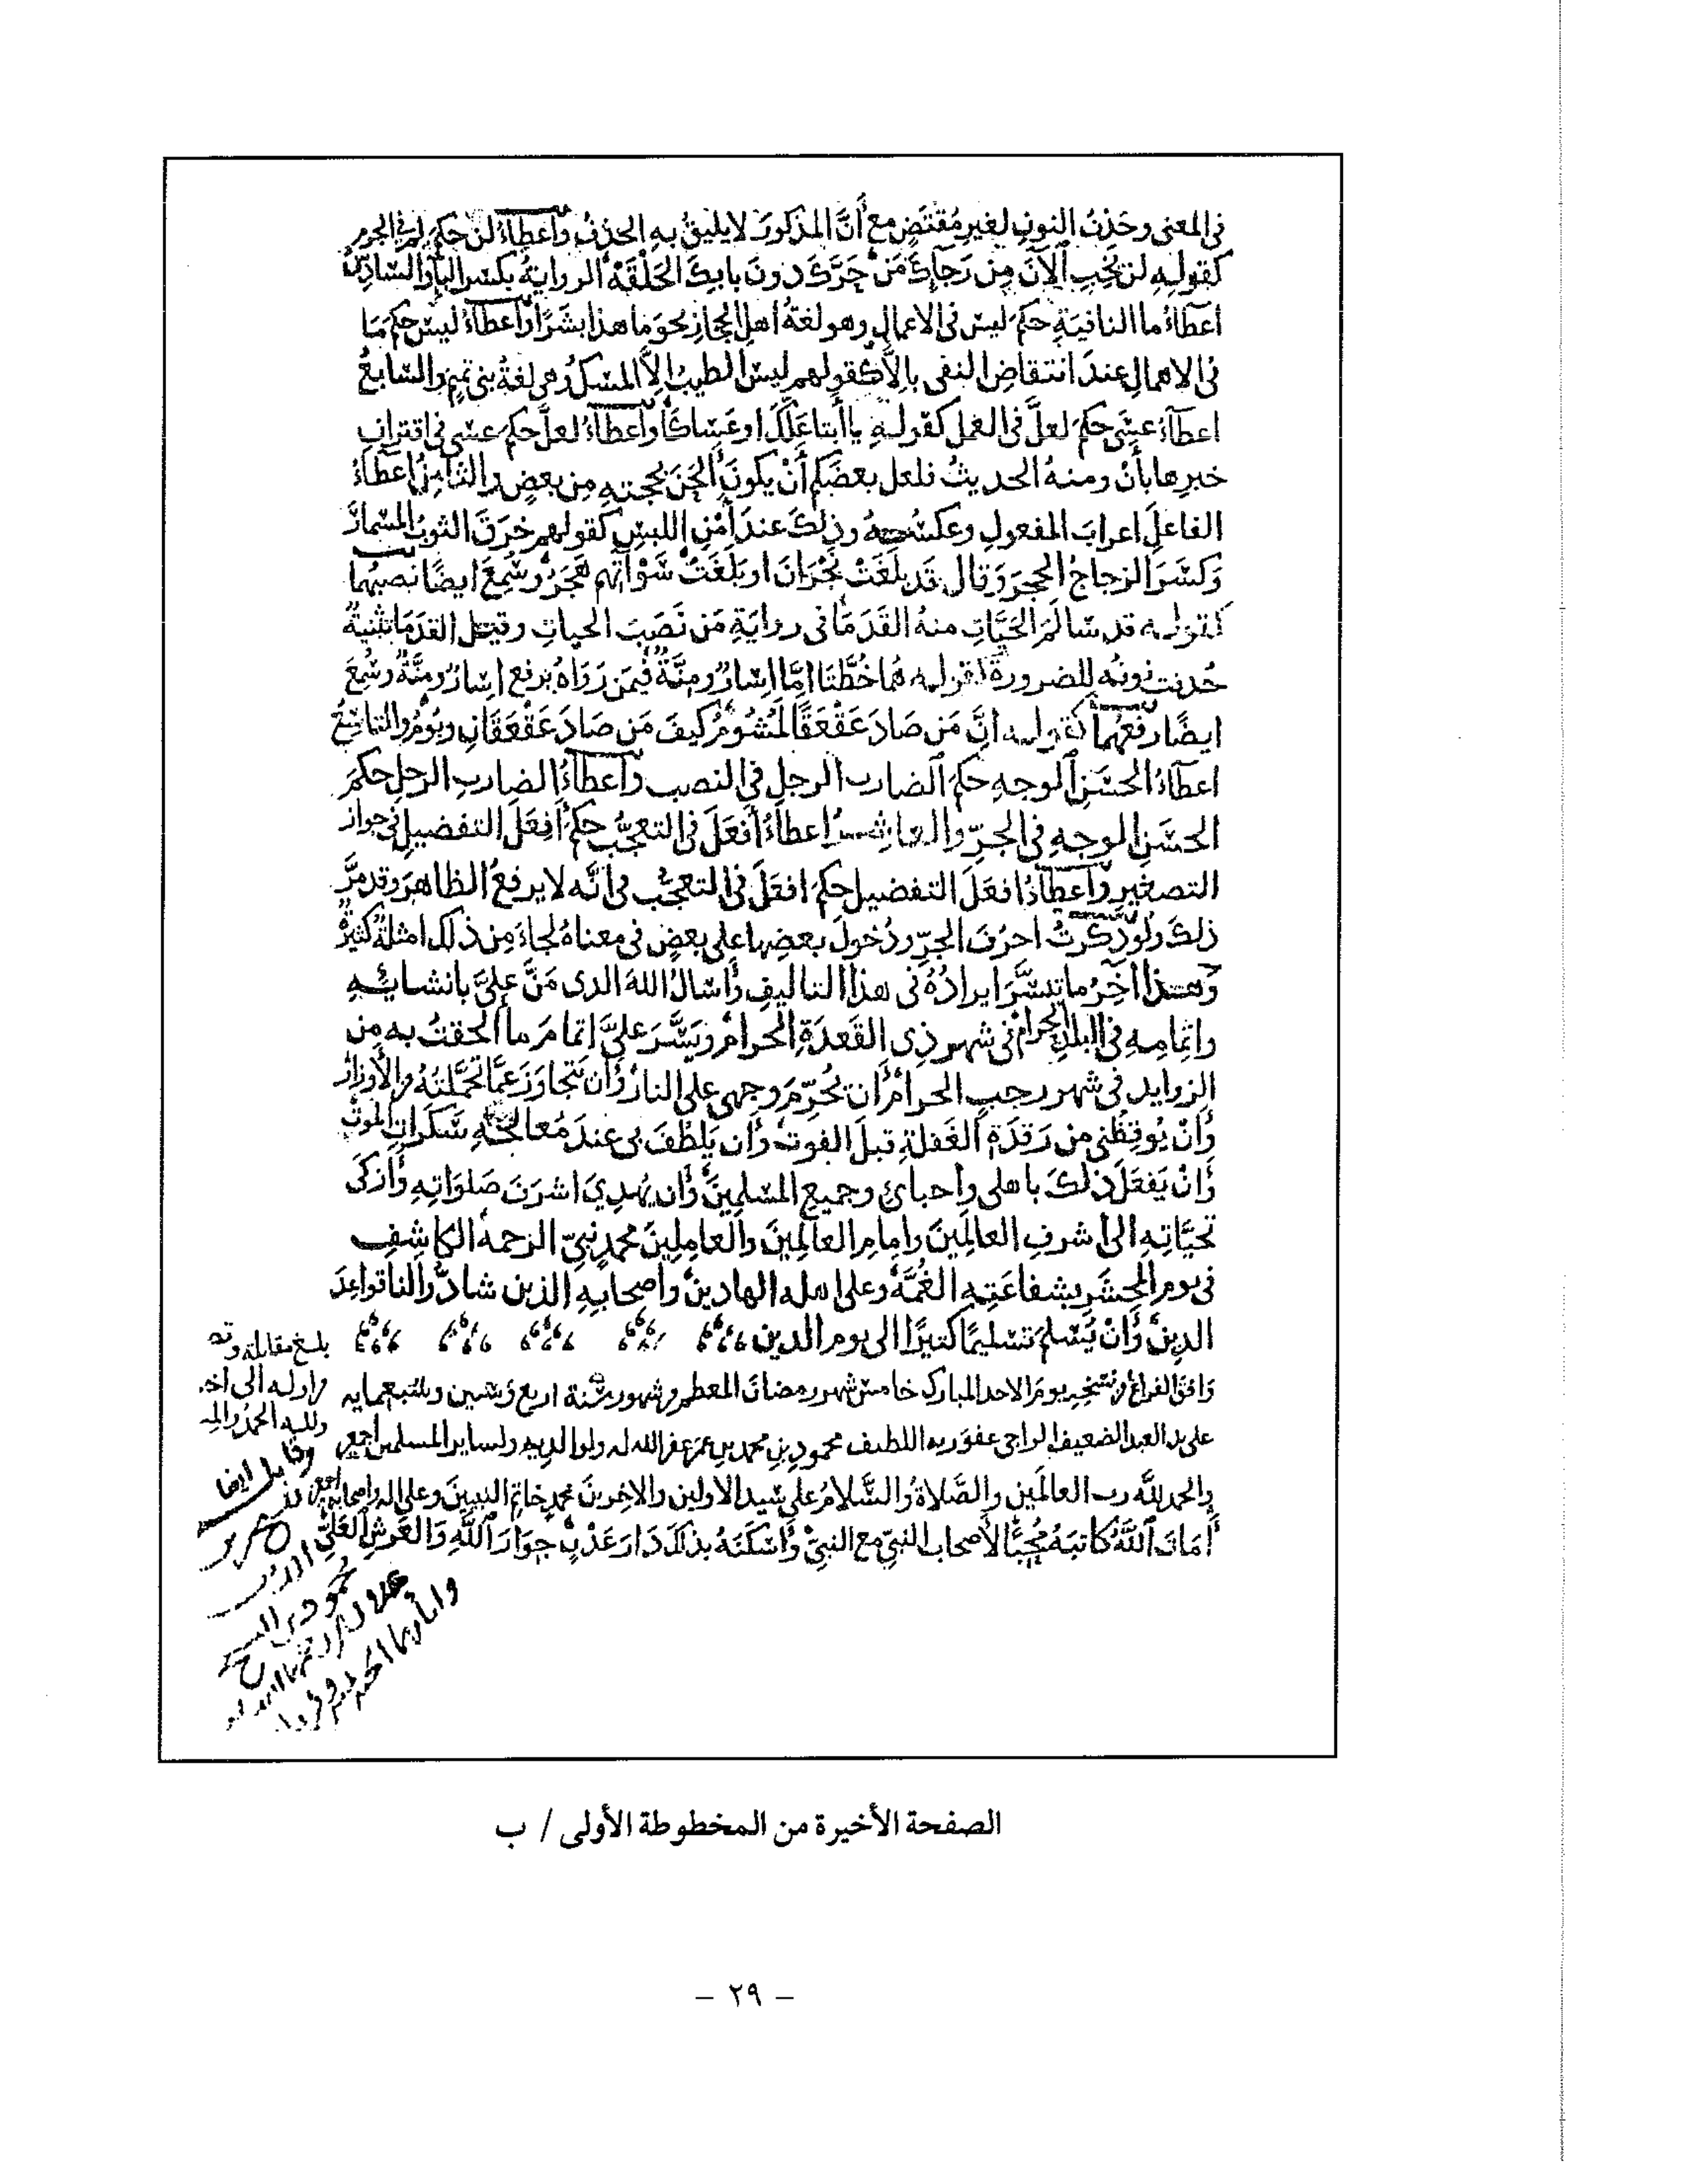 في المعنى وحَذْفُ النونِ لغيرِ مُقْتَضٍ مع أنَّ المذكورَ لا يليقُ به الحذفُ وإعطاءُ لن حكمَ لم في الجزم
كقوله لن يَخِبِ الآنَ مِن رَجائِكَ مَن حَرَّكَ دونَ بابِكَ الحَلْقَهْ الروايةُ بكسر الباءِ والسادسُ
اعطاءُ ما النافيةِ حكمَ ليس في الاعمالِ وهو لغةُ اهل الحجازِ نحوَ ما هذا بشَرًا وإعطاءُ ليس حكمَ ما
في الاهمالِ عندَ انتقاضِ النفي بإلاَّ كقولهم ليس الطيبُ إلاَّ المسكُ وهي لغةُ بني تميم والسابعُ
اعطاءُ عسَى حكمَ لعلَّ في العمل كقوله يا أبتا عَلَّكَ او عَسَاكا وإعطاءُ لعلَّ حكمَ عسى في اقتران
خبرِها بأنْ ومنهُ الحديثُ فلعل بعضَكم أنْ يكونَ ألحَنَ بحجتهِ مِن بعضٍ والثامِنُ إعطاءُ
الفاعلَ اعرابَ المفعولِ وعكسُه وذلكَ عندَ أَمْنِ اللبسِ كقولهم خرَقَ الثوبُ المسمارَ
وكسَرَ الزجاجُ الحجرَ وقال قد بلَغَتْ نَجْرَانَ او بَلَغَتْ سَوْآتِهم هَجَرُ وسُمِعَ ايضًا نصبُهما
كقوله قد سالَمَ الحَيَّاتِ منهُ القَدَمَا في روايةِ مَن نَصَبَ الحياتِ وقيل القدَمَا تثنيةٌ
حُذفت نونُه للضرورةِ كقوله هُما خُطَّتا إمَّا إسارٌ ومِنَّةٌ فيمَن رَوَاهُ برفع إسارٌ ومنَّةٌ وسُمِعَ
ايضًا رفعُهما كقوله إنَّ مَن صَادَ عَقْعَقًا لَمَشُومُ كيفَ مَن صادَ عَقْعَقَانِ وبُومُ والتاسِعُ
اعطاءُ الحسَنِ الوجهِ حكمَ الضارب الرجل في النصب وإعطاءُ الضاربِ الرجلِ حكمَ
الحسَنِ الوجهِ في الجرِّ والعاشرُ إعطاءُ أفعَلَ في التعجُّبِ حكمَ أَفعَلَ التفضيلِ في جواز
التصغيرِ وإعطاءُ افعَلَ التفضيل حكمَ افعَلَ في التعجُّب في أنَّه لا يرفعُ الظاهرَ وقد مرَّ
ذلكَ ولو ذكرتُ احرُفَ الجرِّ ودُخولَ بعضِها على بعضٍ في معناهُ لجاءَ مِن ذلك امثلةٌ كثيرةٌ
وهذا آخِرُ ما تيسَّرَ ايرادُهُ في هذا التاليفِ وأسالُ اللهَ الذي مَنَّ عليَّ بانشائِهِ
واتمامِهِ في البلدِ الحرام في شهر ذي القَعدَةِ الحرام ويَسَّرَ عليَّ إتمامَ ما ألحقتُ به مِن
الزوايد في شهر رجبٍ الحرام أن يُحَرِّمَ وجهي على النار وأن يَتجاوزَ عمَّا تحمَّلتُهُ من الأوزار
وأنْ يُوقِظَني من رَقدَةِ الغفلةِ قبلَ الفوت وأن يَلطُفَ بي عندَ مُعالجةِ سَكَراتِ الموت
وأنْ يَفعَلَ ذلكَ باهلي وأحبائي وجميعِ المسلمينَ وأن يُهدِيَ اشرَفَ صَلوَاتِهِ وأزكَى
تحيَّاتِهِ الى أشرفِ العالَمِينَ وإمامِ العالِمِينَ والعامِلِينَ محمدٍ نبيِّ الرحمة الكاشِفِ
في يوم المحشرِ بشفاعَتِهِ الغُمَّة وعلى اهله الهادين وأصحابِهِ الذين شادُوا لنا قواعِدَ
الدينِ وأنْ يُسَلِّمَ تسليمًا كثيرًا الى يوم الدين
وافق الفراغ من نسخه يومَ الاحد المبارك خامس شهر رمضانَ المعظم من شهور سنة اربع وستين وسبعمايه
على يد العبد الضعيف الراجي عفو ربه اللطيف محمود بن محمد بن عمر غفر الله له ولوالديه ولساير المسلمين أجمعين
والحمد لله رب العالمين والصَّلاةُ والسَّلامُ على سيد الاولين والاخرينَ محمدٍ خاتم النبيينَ وعلى اله واصحابه أجمعين
أمَاتَ اللَّهُ كاتبَهُ مُحِبًّا لأصحاب النبيِّ مع النبيِّ وأسكَنَهُ بذلك دَارَ عَدْنٍ جِوَارَ اللَّهِ وَالعَرْشِ العَلِيِّ
بلغ مقابلة
من اوله الى اخره
ولله الحمد والمنه
وقابل ايضا
الصفحة الأخيرة من المخطوطة الأولى / ب
– ٢٩ –